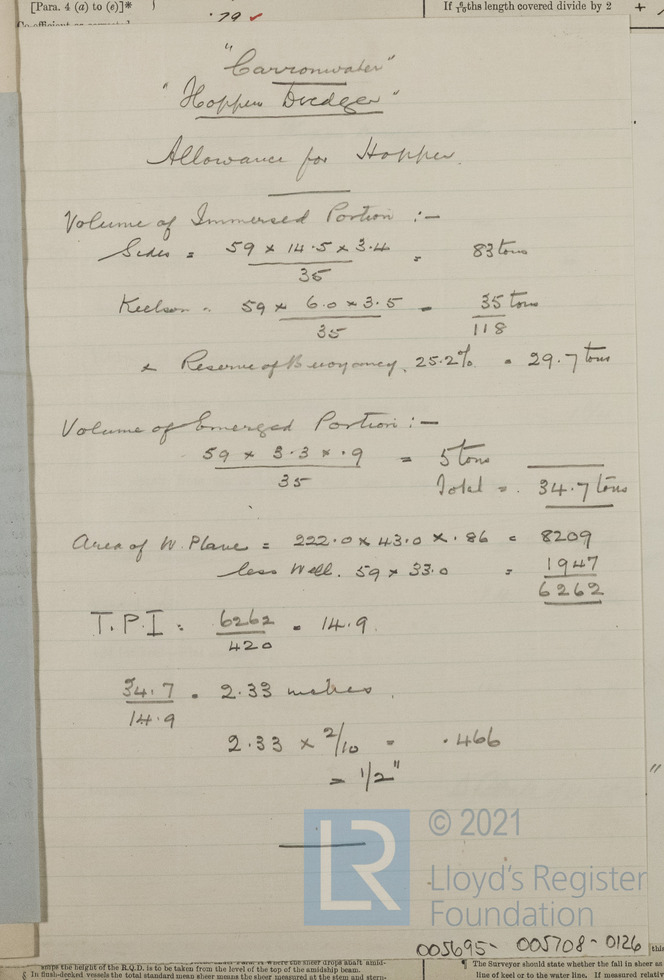 [Para. 4 (a) to (e)]*
·79 ✓
If 6/10ths length covered divide by 2 +
Co-efficient as correct
"Carronwater"
"Hopper Dredger"
Allowance for Hopper.
Volume of Immersed Portion :—
Sides = 59 × 14·5 × 3·4 / 35 = 83 tons
Keelson = 59 × 6·0 × 3·5 / 35 = 35 tons
118
× Reserve of Buoyancy, 25·2% = 29·7 tons
Volume of Emerged Portion :—
59 × 3·3 × ·9 / 35 = 5 tons
Total = 34·7 tons
Area of W. Plane = 222·0 × 43·0 × ·86 = 8209
less Well. 59 × 33·0 = 1947
6262
T.P.I = 6262 / 420 = 14·9.
34·7 / 14·9 = 2·33 metres.
2·33 × 2/10 = ·466
= 1/2"
"
LR
© 2021
Lloyd's Register
Foundation
005695- 005708-0126
amps the height of the B.Q.D. is to be taken from the level of the top of the amidship beam.
g In flush-decked vessels the total standard mean sheer means the sheer measured at the stem and stern-
¶ The Surveyor should state whether the fall in sheer as
line of keel or to the water line. If measured relati